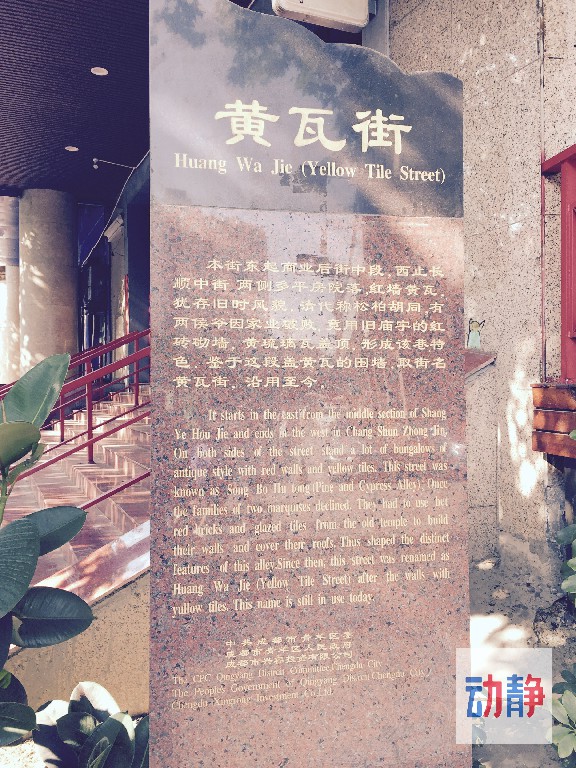 黄瓦街
Huang Wa Jie (Yellow Tile Street)
本街东起商业后街中段，西止长
顺中街，两侧多平房院落，红墙黄瓦
犹存旧时风貌，清代称松柏胡同，有
两侯爷因家业破败，竟用旧庙宇的红
砖砌墙，黄琉璃瓦盖顶，形成该巷特
色，鉴于这段盖黄瓦的围墙，取街名
黄瓦街，沿用至今。
It starts in the east from the middle section of Shang
Ye Hou Jie and ends in the west in Chang Shun Zhong Jin.
On both sides of the street stand a lot of bungalows of
antique style with red walls and yellow tiles. This street was
known as Song Bo Hu tong (Pine and Cypress Alley). Once
the families of two marquises declined. They had to use het
red bricks and glazed tiles from the old temple to build
their walls and cover their roofs. Thus shaped the distinct
features of this alley.Since then, this street was renamed as
Huang Wa Jie (Yellow Tile Street) after the walls with
yullow tiles. This name is still in use today.
中共成都市青羊区委
成都市青羊区人民政府
成都市兴石投资有限公司
The CPC Qingyang District Committee,Chengdu City
The People's Government of Qingyang District,Chengdu City
Chengdu Xingrong Investment Co.,Ltd.
动静